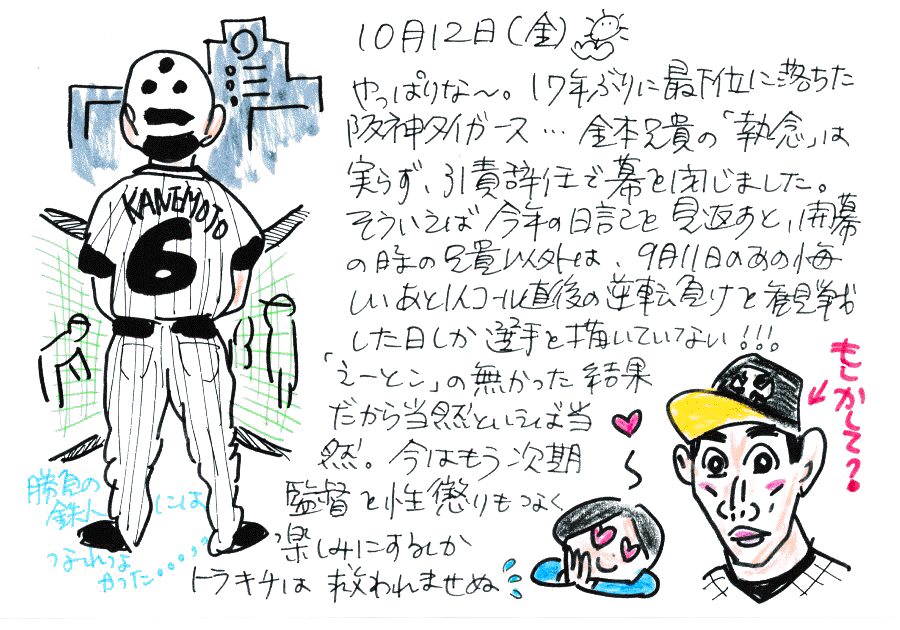 10月12日(金)
やっぱりな~。17年ぶりに最下位に落ちた
阪神タイガース… 金本兄貴の「執念」は
実らず、引責辞任で幕を閉じました。
そういえば今年の日記を見返すと、開幕
の時の兄貴以外は、9月11日のあの悔
しいあと1人コール直後の逆転負けを観戦
した日しか選手を描いていてない!!!
「えーとこ」の無かった結果
だから当然といえば当
然。今はもう次期
監督を性懲りもなく
楽しみにするしか
トラキチは 救われませぬ
もしかして?
KANEMOTO
6
勝負の
鉄人には
つかった・・・・・